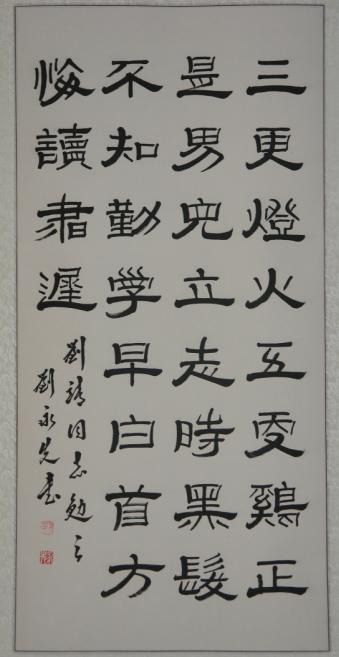 三更燈火五更鷄正
是男兒立志時黑髮
不知勤学早白首方
悔讀書遲
劉靖同志勉之
劉永先書